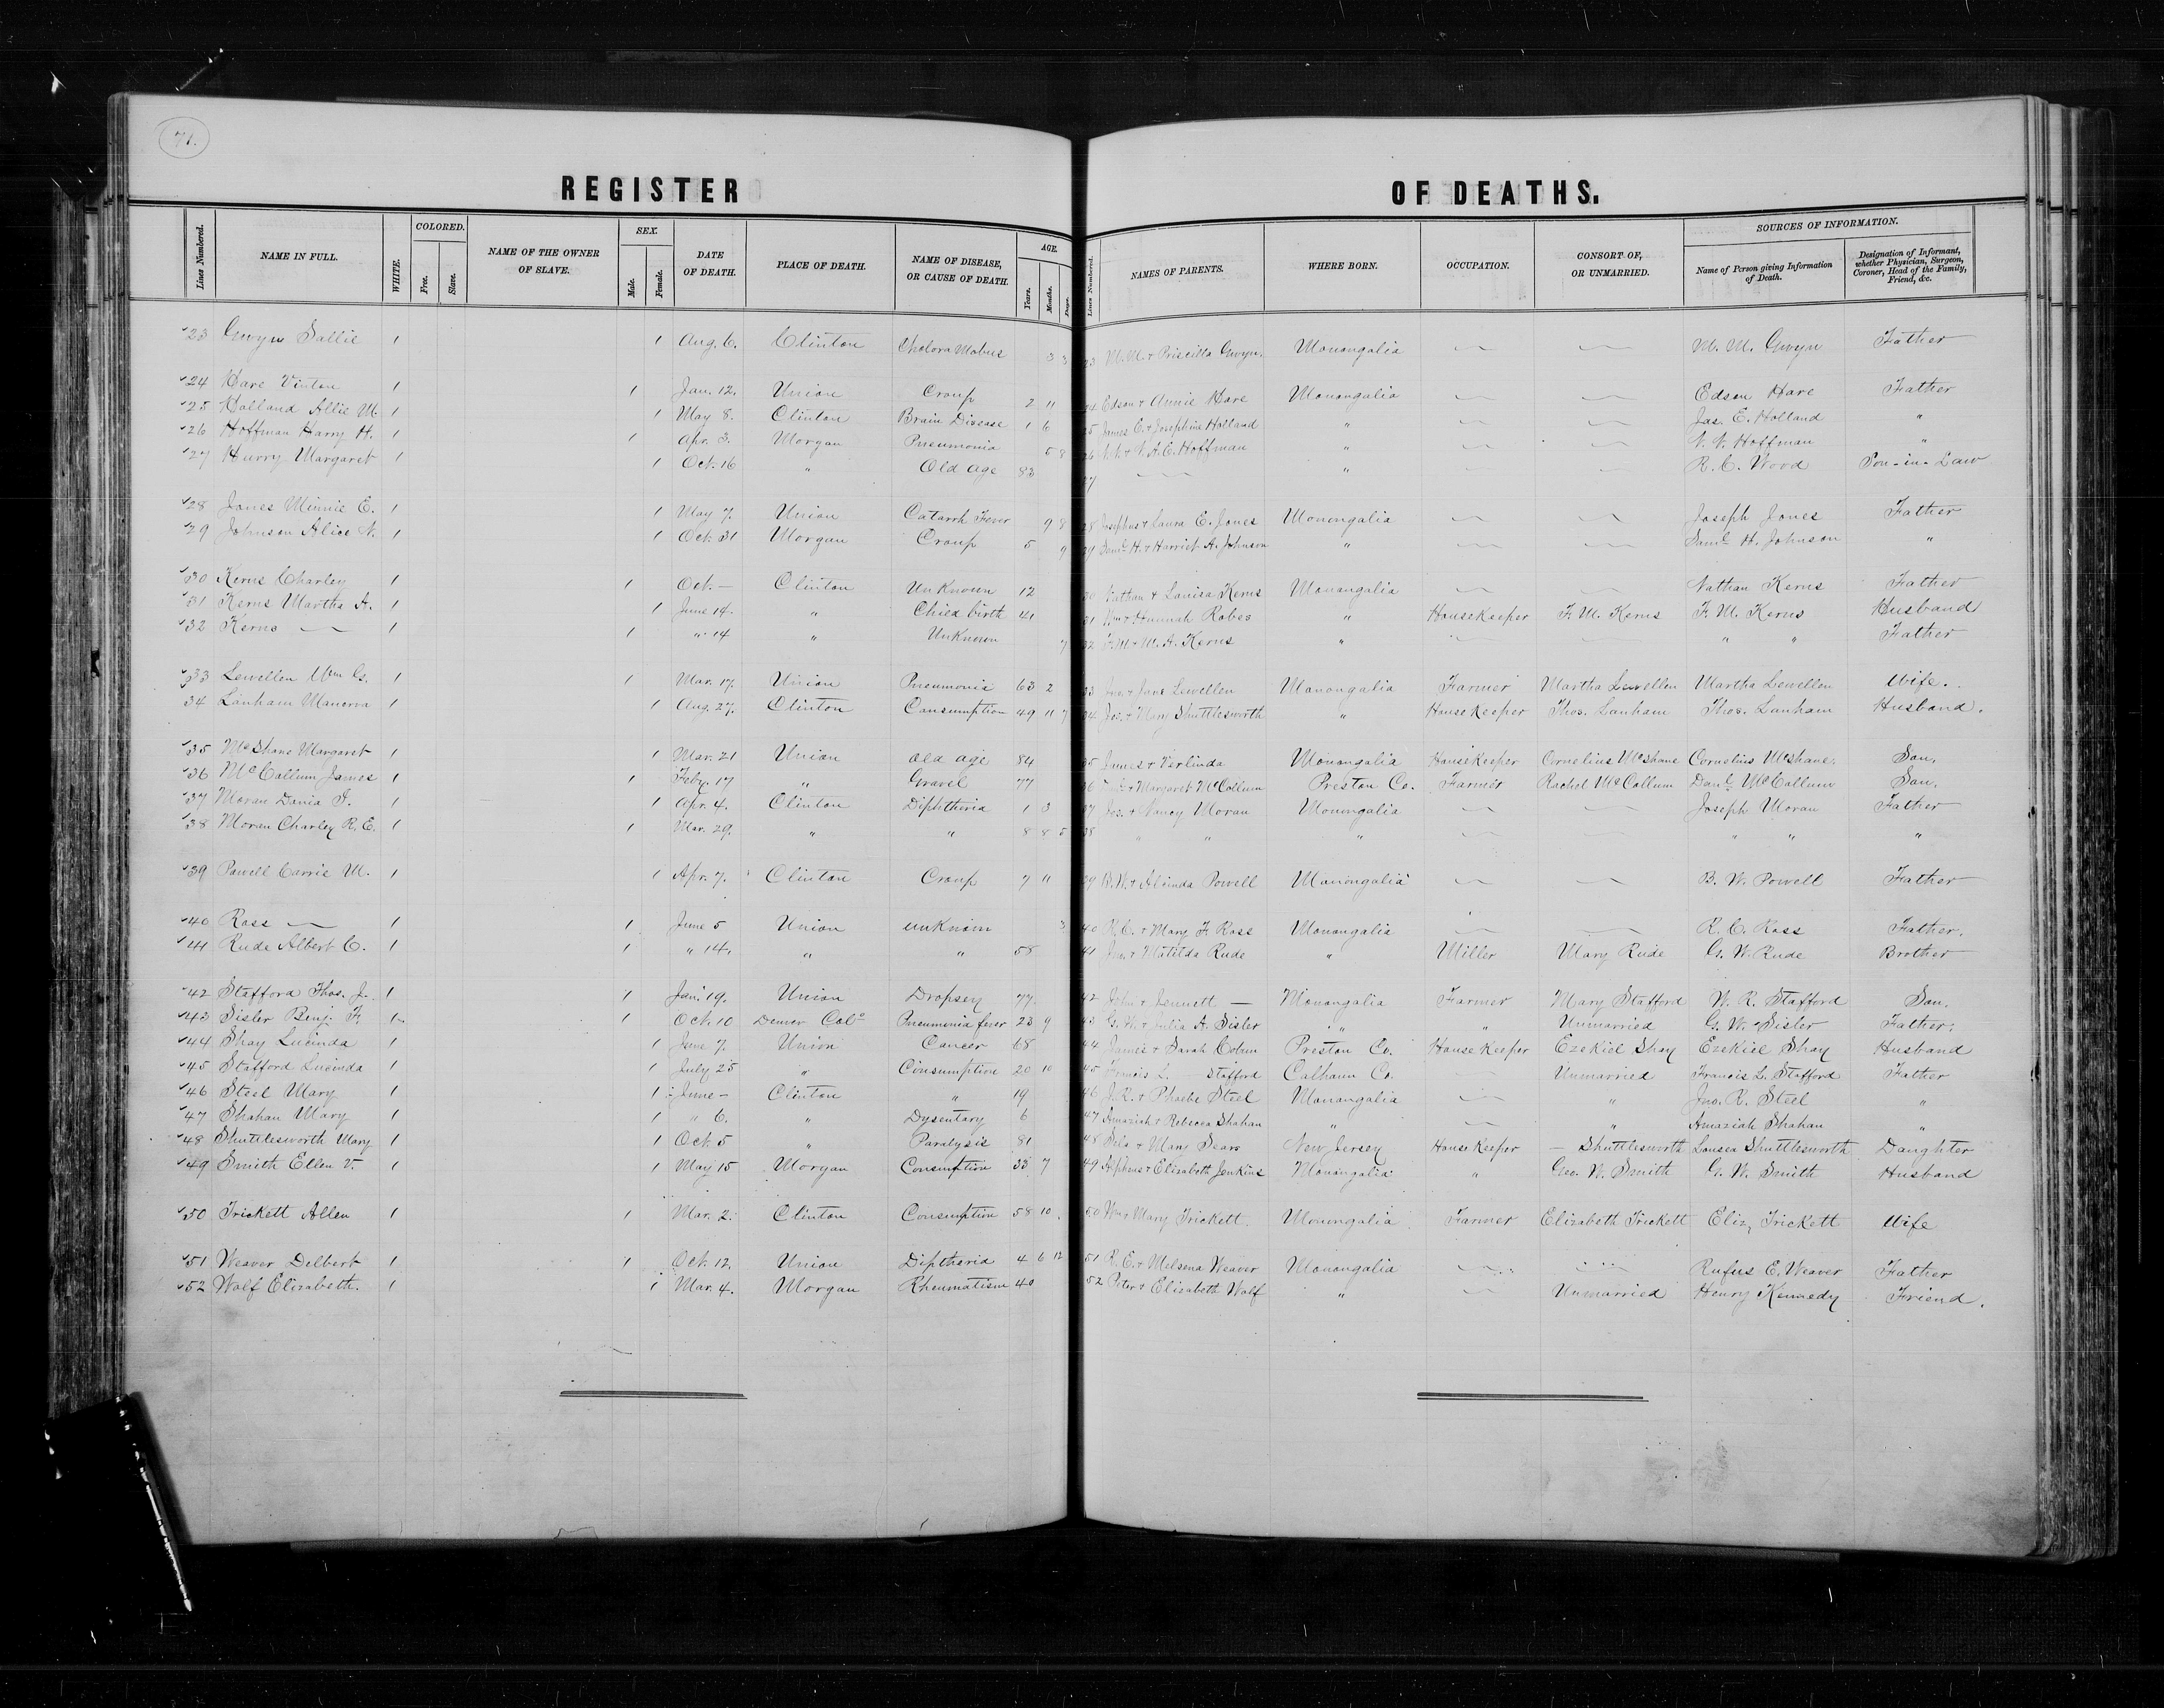 71.
REGISTER OF DEATHS.
Lines Numbered. NAME IN FULL. WHITE. COLORED. Free. Slave. NAME OF THE OWNER OF SLAVE. SEX. Male. Female. DATE OF DEATH. PLACE OF DEATH. NAME OF DISEASE, OR CAUSE OF DEATH. AGE. Years. Months. Days. Lines Numbered. NAMES OF PARENTS. WHERE BORN. OCCUPATION. CONSORT OF, OR UNMARRIED. SOURCES OF INFORMATION. Name of Person giving Information of Death. Designation of Informant, whether Physician, Surgeon, Coroner, Head of the Family, Friend, &c.
23 Gwyn Sallie 1 1 Aug. 6. Clinton Cholora Mobus 3 3 23 M. M. & Priscilla Gwyn. Monongalia M. M. Gwyn Father
24 Hare Vinton 1 1 Jan. 12. Union Croup 2 11 24 Edson & Annie Hare Monongalia Edson Hare Father
25 Holland Allie M. 1 1 May 8. Clinton Brain Disease 1 6 25 James E. & Josephine Holland " Jas. E. Holland "
26 Hoffman Harry H. 1 1 Apr. 3. Morgan Pneumonia 5 8 26 N. N. & V. A. C. Hoffman " N. N. Hoffman "
27 Hurry Margaret 1 1 Oct. 16 " Old age 83 27 " R. C. Wood Son-in-Law
28 Jones Minnie E. 1 1 May 7. Union Catarrh Fever 9 8 28 Josephus & Laura E. Jones Monongalia Joseph Jones Father
29 Johnson Alice N. 1 1 Oct. 31 Morgan Croup 5 9 29 Saml. H. & Harriet A. Johnson " Saml. H. Johnson "
30 Kerns Charley 1 1 Oct. — Clinton UnKnown 12 30 Nathan & Louisa Kerns Monongalia Nathan Kerns Father
31 Kerns Martha A. 1 1 June 14. " Child birth 41 31 Wm & Hannah Robes " HouseKeeper F. M. Kerns F. M. Kerns Husband
32 Kerns — 1 1 " 14 " UnKnown 7 32 F. M. & M. A. Kerns " " " Father
33 Lewellen Wm G. 1 1 Mar. 17. Union Pneumonia 63 2 33 Jno. & Jane Lewellen Monongalia Farmer Martha Lewellen Martha Lewellen Wife.
34 Lanham Manerva 1 1 Aug. 27. Clinton Consumption 49 11 7 34 Jos. & Mary Shuttlesworth " HouseKeeper Thos. Lanham Thos. Lanham Husband.
35 McShane Margaret 1 1 Mar. 21 Union old age 84 35 James & Verlinda Monongalia HouseKeeper Cornelius McShane Cornelius McShane. Son.
36 McCollum James 1 1 Feby. 17 " Gravel 77 36 Danl. & Margaret McCollum Preston Co. Farmer Rachel McCollum Danl. McCollum Son.
37 Moran Dania I. 1 1 Apr. 4. Clinton Diphtheria 1 3 37 Jos. & Nancy Moran Monongalia Joseph Moran Father
38 Moran Charley R. E. 1 1 Mar. 29. " " 8 8 5 38 " " " " " "
39 Powell Carrie M. 1 1 Apr. 7. Clinton Croup 7 11 39 B. W. & Alcinda Powell Monongalia B. W. Powell Father
40 Ross — 1 1 June 5 Union unknown 3 40 R. C. & Mary F. Ross Monongalia R. C. Ross Father.
41 Rude Albert C. 1 1 " 14. " " 58 41 Jno. & Matilda Rude " Miller Mary Rude G. W. Rude Brother
42 Stafford Thos. J. 1 1 Jan. 19. Union Dropsey 77. 42 John & Jennett — Monongalia Farmer Mary Stafford W. R. Stafford Son.
43 Sisler Benj. F. 1 1 Oct. 10 Denver Colo Pneumonia fever 23 9 43 G. W. & Julia A. Sisler " " Unmarried G. W. Sisler Father.
44 Shay Lucinda 1 1 June 7. Union Cancer 68 44 James & Sarah Cobun Preston Co. HouseKeeper Ezekiel Shay Ezekiel Shay Husband
45 Stafford Lucinda 1 1 July 25 " Consumption 20 10 45 Francis L. — Stafford Calhoun Co. Unmarried Francis L. Stafford Father
46 Steel Mary 1 1 June — Clinton " 19 46 J. R. & Phoebe Steel Monongalia " Jno. R. Steel "
47 Shahan Mary 1 1 " 6. " Dysentary 6 47 Amaziah & Rebecca Shahan " " Amaziah Shahan "
48 Shuttlesworth Mary 1 1 Oct. 5 " Paralysis 81 48 Silo & Mary Sears New Jersey HouseKeeper — Shuttlesworth Louisa Shuttlesworth Daughter
49 Smith Ellen V. 1 1 May 15 Morgan Consumption 33 7 49 Alpheus & Elizabeth Jenkins Monongalia " Geo. W. Smith G. W. Smith Husband
50 Trickett Allen 1 1 Mar. 2. Clinton Consumption 58 10 50 Wm & Mary Trickett. Monongalia Farmer Elizabeth Trickett Eliz. Trickett Wife
51 Weaver Delbert 1 1 Oct. 12. Union Diptheria 4 6 12 51 R. E. & Melsena Weaver Monongalia Rufus E. Weaver Father
52 Wolf Elizabeth. 1 1 Mar. 4. Morgan Rheumatism 40 52 Peter & Elizabeth Wolf " Unmarried Henry Kennedy Friend.